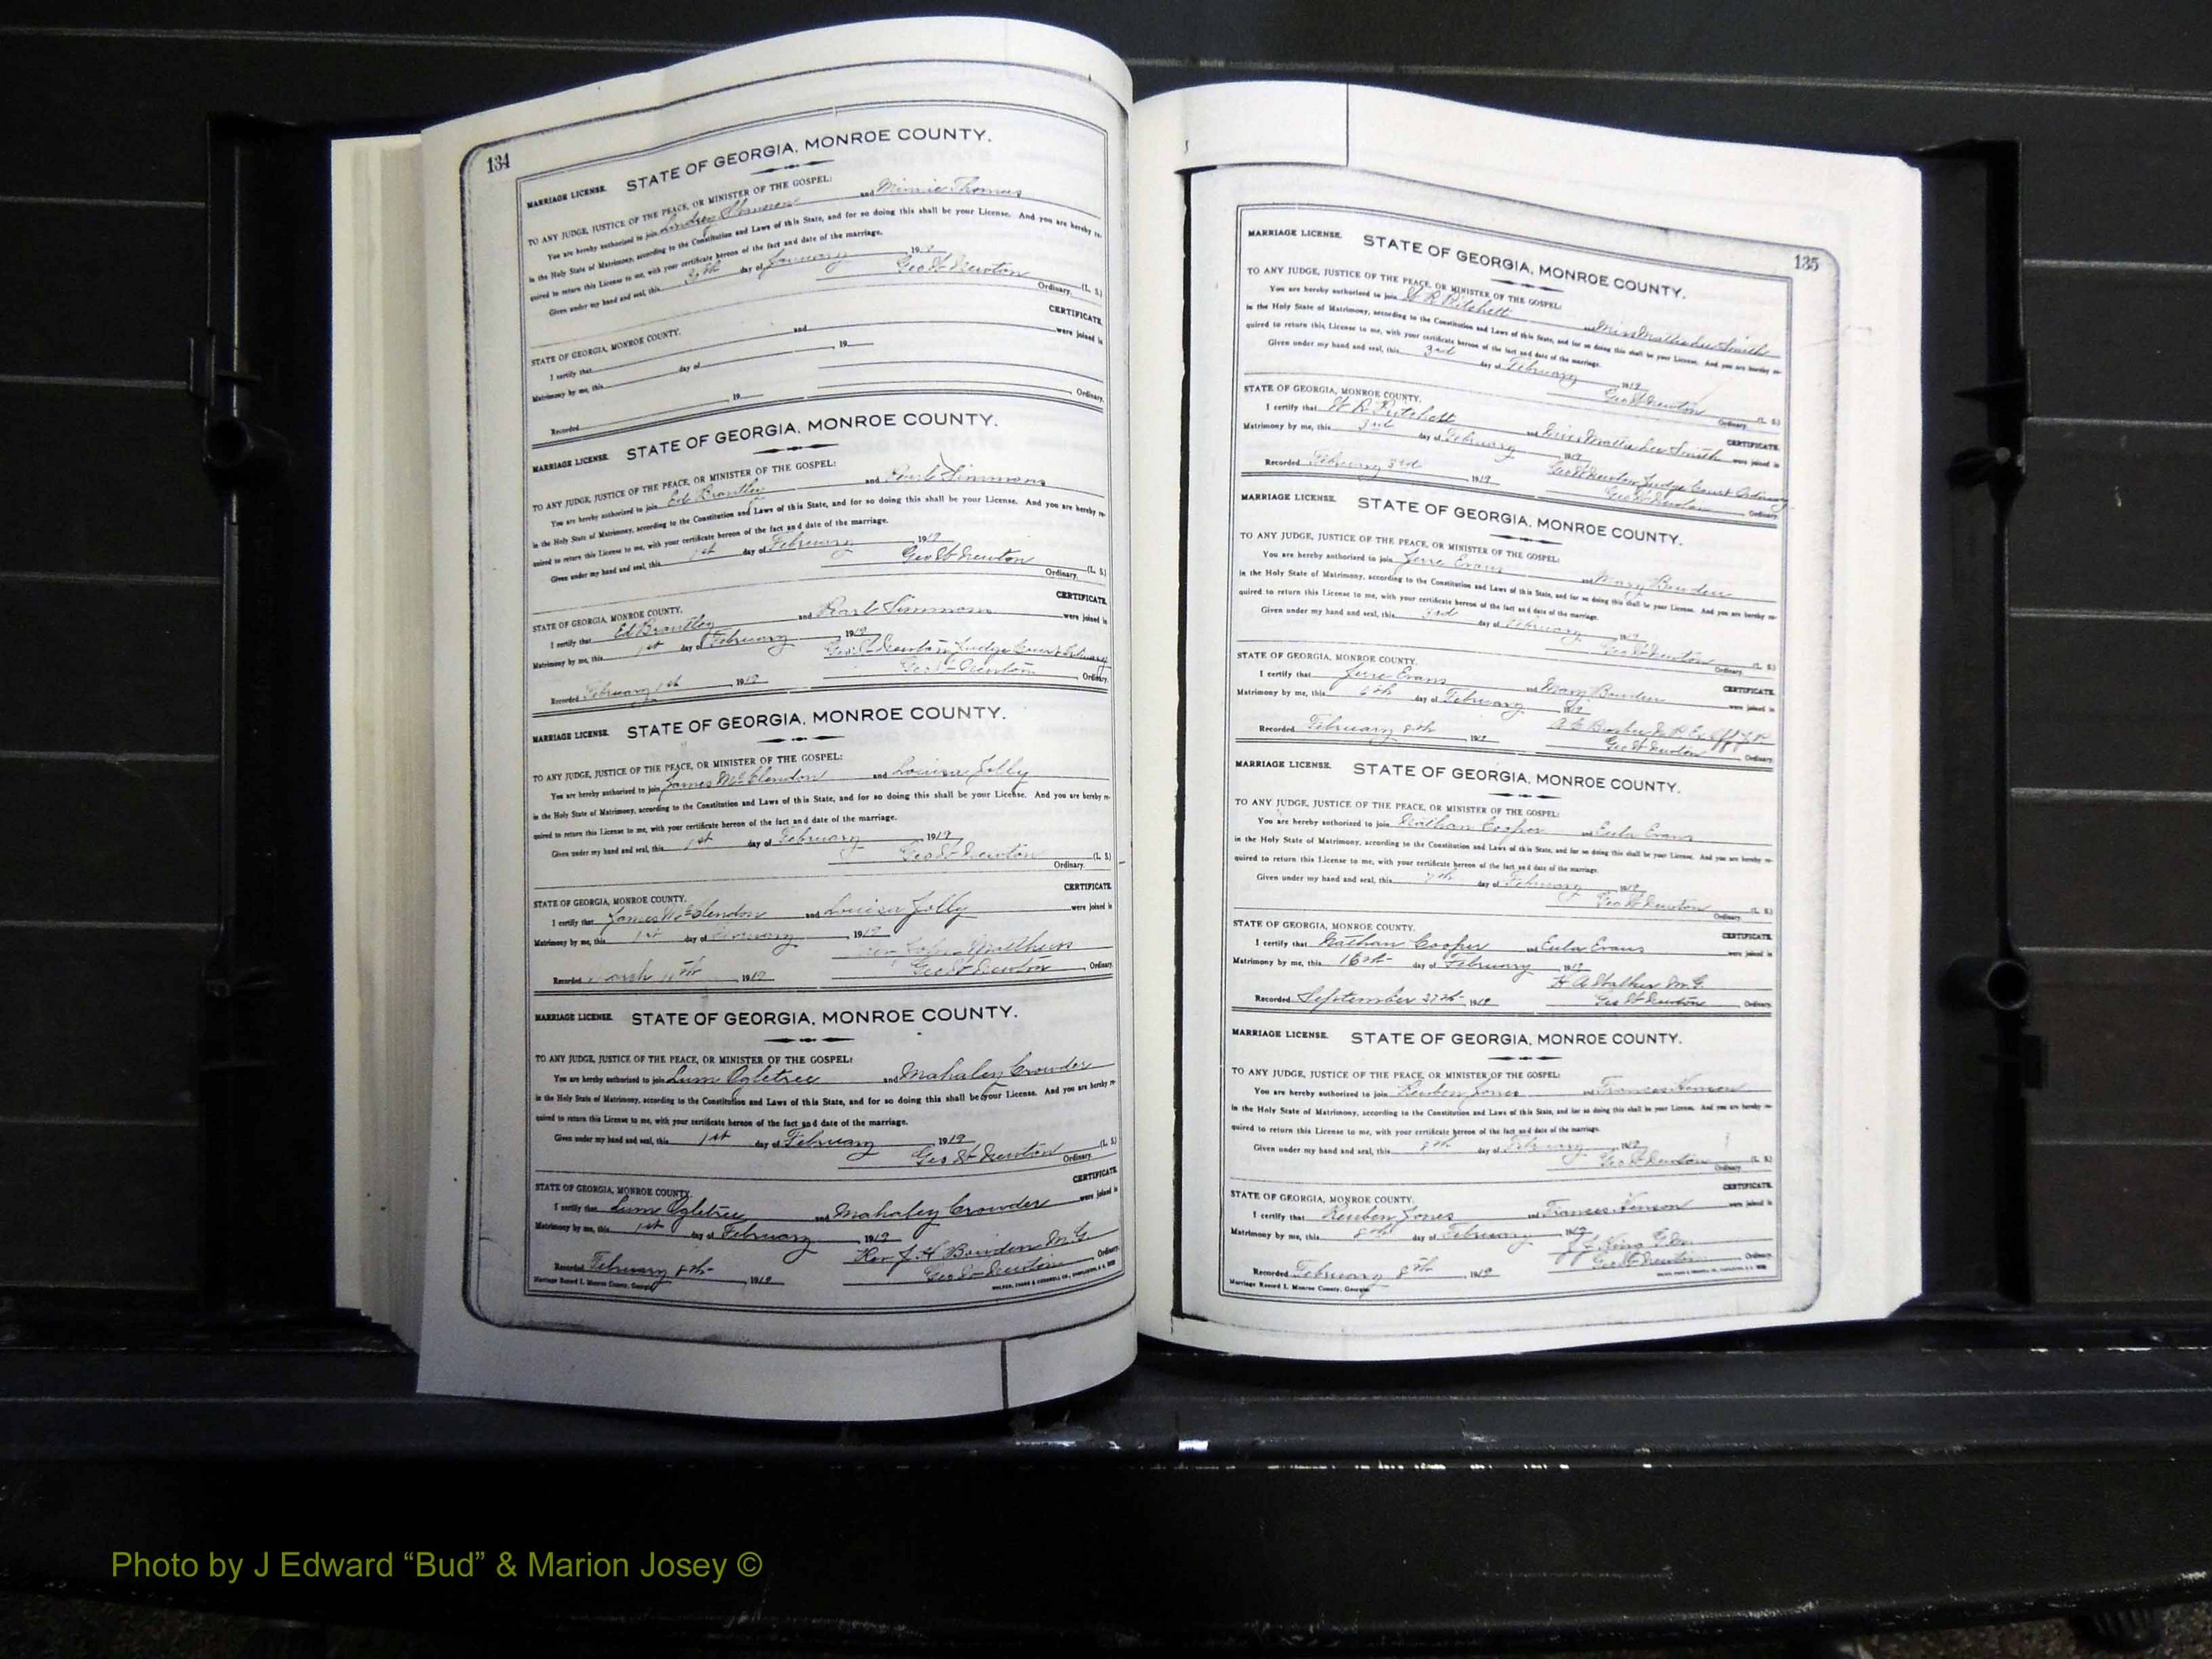 134
MARRIAGE LICENSE. STATE OF GEORGIA, MONROE COUNTY.
TO ANY JUDGE, JUSTICE OF THE PEACE, OR MINISTER OF THE GOSPEL:
You are hereby authorized to join and Minnie Thomas
in the Holy State of Matrimony, according to the Constitution and Laws of this State, and for so doing this shall be your License. And you are hereby re-
quired to return this License to me, with your certificate hereon of the fact and date of the marriage.
Given under my hand and seal, this day of January 19
Geo W Newton (L. S.)
Ordinary.
CERTIFICATE.
STATE OF GEORGIA, MONROE COUNTY.
I certify that and were joined in
Matrimony by me, this day of , 19
Recorded , 19 Ordinary.
MARRIAGE LICENSE. STATE OF GEORGIA, MONROE COUNTY.
TO ANY JUDGE, JUSTICE OF THE PEACE, OR MINISTER OF THE GOSPEL:
You are hereby authorized to join Ed Brantley and Pearl Simmons
in the Holy State of Matrimony, according to the Constitution and Laws of this State, and for so doing this shall be your License. And you are hereby re-
quired to return this License to me, with your certificate hereon of the fact and date of the marriage.
Given under my hand and seal, this 1st day of February , 1919
Geo W Newton (L. S.)
Ordinary.
CERTIFICATE.
STATE OF GEORGIA, MONROE COUNTY.
I certify that Ed Brantley and Pearl Simmons were joined in
Matrimony by me, this 1st day of February , 1919
Geo W Newton Judge Court Ordinary
Recorded February 1st , 1919 Geo W Newton Ordinary.
MARRIAGE LICENSE. STATE OF GEORGIA, MONROE COUNTY.
TO ANY JUDGE, JUSTICE OF THE PEACE, OR MINISTER OF THE GOSPEL:
You are hereby authorized to join James McClendon and Louisa Jolly
in the Holy State of Matrimony, according to the Constitution and Laws of this State, and for so doing this shall be your License. And you are hereby re-
quired to return this License to me, with your certificate hereon of the fact and date of the marriage.
Given under my hand and seal, this 1st day of February , 1919
Geo W Newton (L. S.)
Ordinary.
CERTIFICATE.
STATE OF GEORGIA, MONROE COUNTY.
I certify that James McClendon and Louisa Jolly were joined in
Matrimony by me, this 1st day of February , 1919
Matthews
Recorded March , 1919 Geo W Newton , Ordinary.
MARRIAGE LICENSE. STATE OF GEORGIA, MONROE COUNTY.
TO ANY JUDGE, JUSTICE OF THE PEACE, OR MINISTER OF THE GOSPEL:
You are hereby authorized to join Lum Ogletree and Mahaley Crowder
in the Holy State of Matrimony, according to the Constitution and Laws of this State, and for so doing this shall be your License. And you are hereby re-
quired to return this License to me, with your certificate hereon of the fact and date of the marriage.
Given under my hand and seal, this 1st day of February 1919
Geo W Newton (L. S.)
Ordinary.
CERTIFICATE.
STATE OF GEORGIA, MONROE COUNTY.
I certify that Lum Ogletree and Mahaley Crowder were joined in
Matrimony by me, this 1st day of February , 1919
Rev J. H Bowden M. G.
Recorded February 8th , 1919 Geo W Newton Ordinary.
Marriage Record I. Monroe County, Georgia
135
MARRIAGE LICENSE. STATE OF GEORGIA, MONROE COUNTY.
TO ANY JUDGE, JUSTICE OF THE PEACE, OR MINISTER OF THE GOSPEL:
You are hereby authorized to join W R Pitchett and Miss Smith
in the Holy State of Matrimony, according to the Constitution and Laws of this State, and for so doing this shall be your License. And you are hereby re-
quired to return this License to me, with your certificate hereon of the fact and date of the marriage.
Given under my hand and seal, this 3rd day of February , 1919
Geo W Newton (L. S.)
Ordinary.
CERTIFICATE.
STATE OF GEORGIA, MONROE COUNTY.
I certify that W R Pitchett and Miss Smith were joined in
Matrimony by me, this 3rd day of February , 1919
Geo W Newton Judge Court Ordinary
Recorded February 3rd , 1919 Geo W Newton Ordinary.
MARRIAGE LICENSE. STATE OF GEORGIA, MONROE COUNTY.
TO ANY JUDGE, JUSTICE OF THE PEACE, OR MINISTER OF THE GOSPEL:
You are hereby authorized to join Jerre Evans and Mary Bowden
in the Holy State of Matrimony, according to the Constitution and Laws of this State, and for so doing this shall be your License. And you are hereby re-
quired to return this License to me, with your certificate hereon of the fact and date of the marriage.
Given under my hand and seal, this 3rd day of February , 1919
Geo W Newton (L. S.)
Ordinary.
CERTIFICATE.
STATE OF GEORGIA, MONROE COUNTY.
I certify that Jerre Evans and Mary Bowden were joined in
Matrimony by me, this 6th day of February , 1919
Recorded February 8th , 1919 Geo W Newton Ordinary.
MARRIAGE LICENSE. STATE OF GEORGIA, MONROE COUNTY.
TO ANY JUDGE, JUSTICE OF THE PEACE, OR MINISTER OF THE GOSPEL:
You are hereby authorized to join Nathan Cooper and Eula Evans
in the Holy State of Matrimony, according to the Constitution and Laws of this State, and for so doing this shall be your License. And you are hereby re-
quired to return this License to me, with your certificate hereon of the fact and date of the marriage.
Given under my hand and seal, this 7th day of February , 1919
Geo W Newton (L. S.)
Ordinary.
CERTIFICATE.
STATE OF GEORGIA, MONROE COUNTY.
I certify that Nathan Cooper and Eula Evans were joined in
Matrimony by me, this 16th day of February , 1919
H A Walker M. G.
Recorded September 27th , 1919 Geo W Newton Ordinary.
MARRIAGE LICENSE. STATE OF GEORGIA, MONROE COUNTY.
TO ANY JUDGE, JUSTICE OF THE PEACE, OR MINISTER OF THE GOSPEL:
You are hereby authorized to join Reuben Jones and Frances Henson
in the Holy State of Matrimony, according to the Constitution and Laws of this State, and for so doing this shall be your License. And you are hereby re-
quired to return this License to me, with your certificate hereon of the fact and date of the marriage.
Given under my hand and seal, this 8th day of February , 1919
Geo W Newton (L. S.)
Ordinary.
CERTIFICATE.
STATE OF GEORGIA, MONROE COUNTY.
I certify that Reuben Jones and Frances Henson were joined in
Matrimony by me, this 8th day of February , 1919
Recorded February 8th , 1919 Geo W Newton Ordinary.
Marriage Record I. Monroe County, Georgia
Photo by J Edward “Bud” & Marion Josey ©